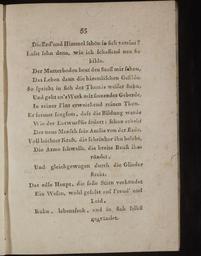 55
Die Erd' und Himmel schön in sich vereint?
Laßt sehn denn, wie ich schaffend neu be
bilde.
Der Mutterboden beut den Stoff mir schon,
Das Leben dann die himmlischen Gefilde.
So spricht in sich der Themis weiser Sohn,
Und geht an's Werk mit sinnender Geberde.
In seiner Hand erweichend reinen Thon.
Er formet sorgsam, daß die Bildung werde
Wie in der Entwurf sie fodert; schon erhebt
Der neue Mensch sein Antlitz von der Erde.
Voll leichter Kraft, die
Die Arme schwellt, die breite Brust ihm
ründet,
Und gleichgewogen durch die Glieder
strebt.
Das edle Haupt, die helle Stirn verkündet
Ein Wesen, wohl gefaßt auf Freud' und
Leid,
Ruhn, lebensfroh, und in sich selbst
gegründet.